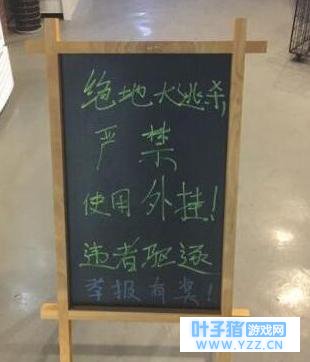 绝地大逃杀,
严禁
使用外挂!
违者驱逐
举报有奖!
叶子猪游戏网
WWW.YZZ.CN